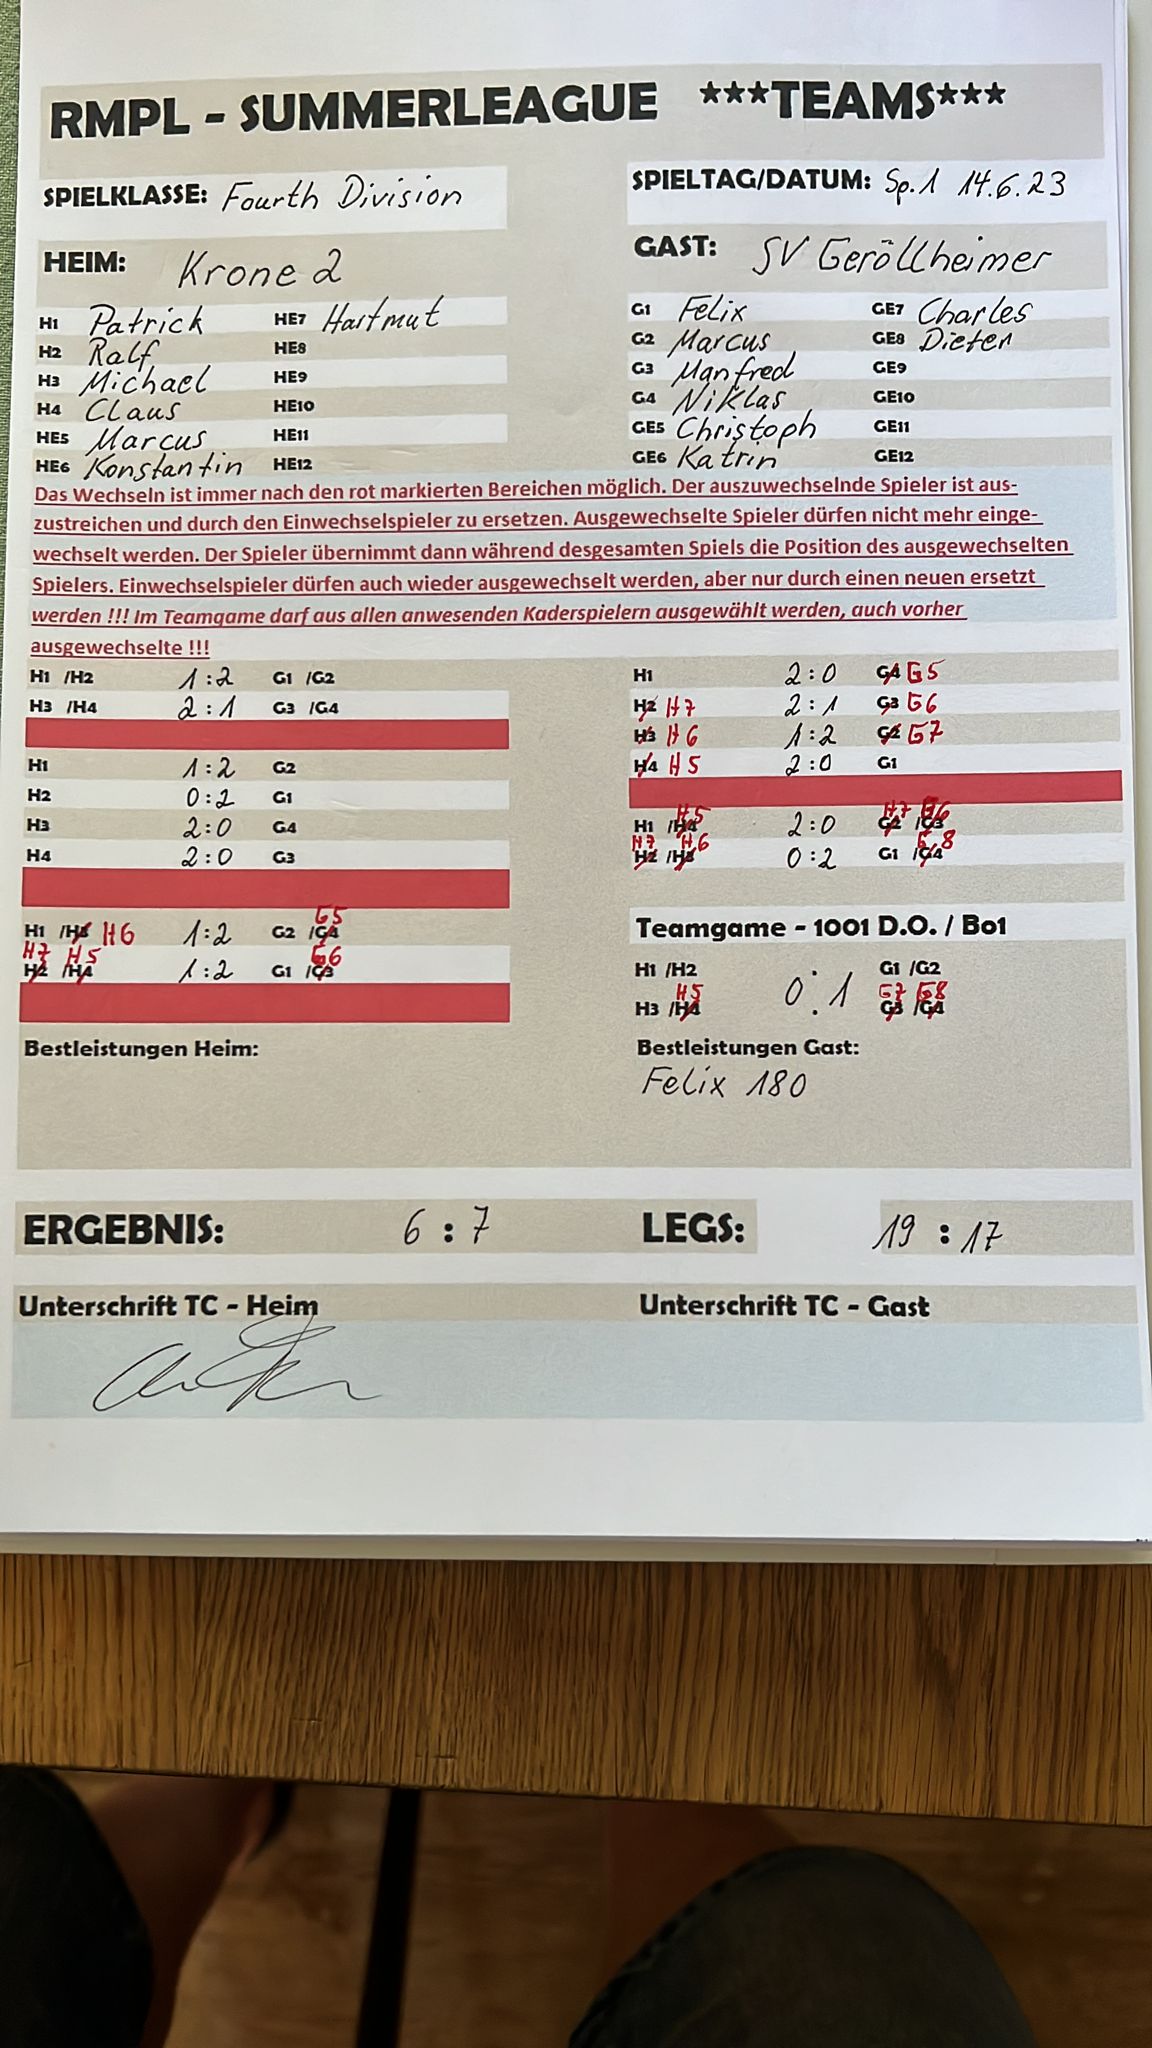 RMPL - SUMMERLEAGUE ***TEAMS***
SPIELKLASSE: Fourth Division
SPIELTAG/DATUM: Sp.1 14.6.23
HEIM: Krone 2
GAST: SV Geröllheimer
H1 Patrick HE7 Hartmut
H2 Ralf HE8
H3 Michael HE9
H4 Claus HE10
HE5 Marcus HE11
HE6 Konstantin HE12
G1 Felix GE7 Charles
G2 Marcus GE8 Dieter
G3 Manfred GE9
G4 Niklas GE10
GE5 Christoph GE11
GE6 Katrin GE12
Das Wechseln ist immer nach den rot markierten Bereichen möglich. Der auszuwechselnde Spieler ist aus-
zustreichen und durch den Einwechselspieler zu ersetzen. Ausgewechselte Spieler dürfen nicht mehr einge-
wechselt werden. Der Spieler übernimmt dann während desgesamten Spiels die Position des ausgewechselten
Spielers. Einwechselspieler dürfen auch wieder ausgewechselt werden, aber nur durch einen neuen ersetzt
werden !!! Im Teamgame darf aus allen anwesenden Kaderspielern ausgewählt werden, auch vorher
ausgewechselte !!!
H1 /H2 1:2 G1 /G2
H3 /H4 2:1 G3 /G4
H1 1:2 G2
H2 0:2 G1
H3 2:0 G4
H4 2:0 G3
G5
H1 /H3 H6 1:2 G2 /G4
H7 H5 G6
H2 /H4 1:2 G1 /G3
H1 2:0 G4 G5
H2 H7 2:1 G3 G6
H3 H6 1:2 G2 G7
H4 H5 2:0 G1
H5 H7 G6
H1 /H4 2:0 G2 /G3
H7 H6 G8
H2 /H3 0:2 G1 /G4
Teamgame - 1001 D.O. / Bo1
H1 /H2 G1 /G2
0:1
H5 G7 G8
H3 /H4 G3 /G4
Bestleistungen Heim:
Bestleistungen Gast:
Felix 180
ERGEBNIS: 6 : 7 LEGS: 19 : 17
Unterschrift TC - Heim
Unterschrift TC - Gast